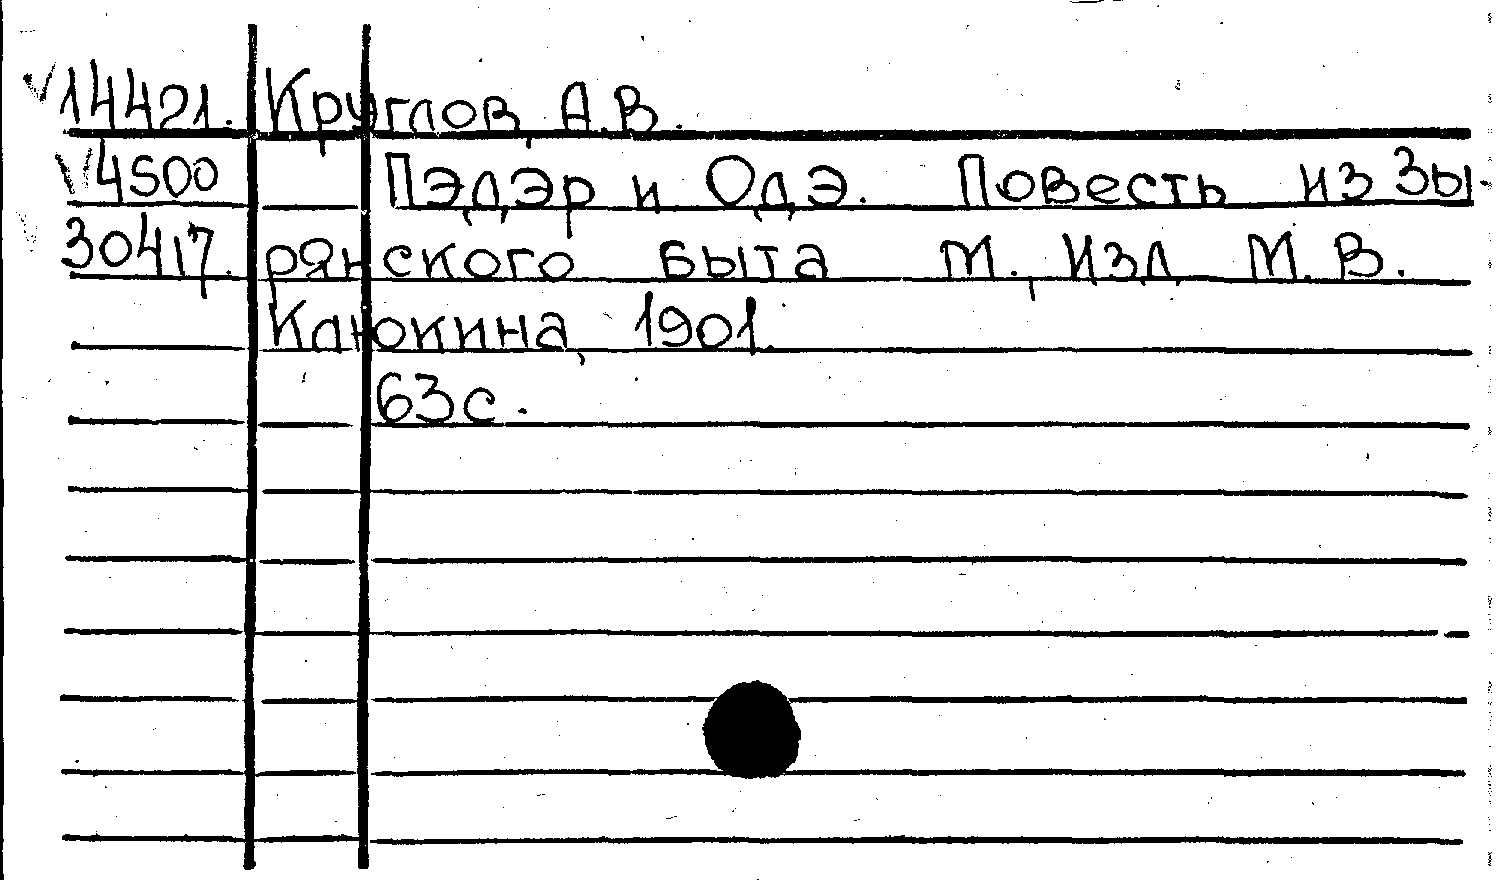 14421. Круглов, А.В.
4500 Пэдэр и Одэ. Повесть из Зы-
30417. рянского быта М., Изд. М.В.
Канюкина, 1901.
63с.